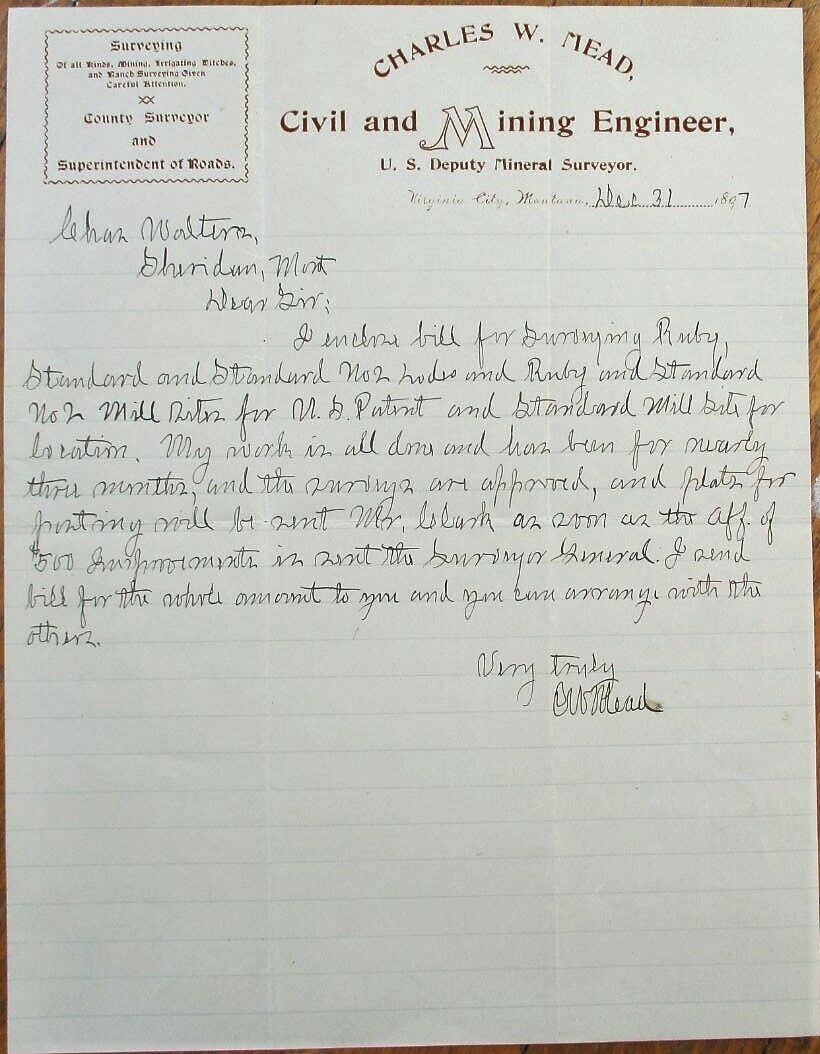 Surveying
Of all Kinds, Mining, Irrigating Ditches,
and Ranch Surveying Given
Careful Attention.
County Surveyor
and
Superintendent of Roads.
CHARLES W. MEAD,
Civil and Mining Engineer,
U. S. Deputy Mineral Surveyor.
Virginia City, Montana, Dec 31 1897
Chas Walters,
Sheridan, Mont
Dear Sir;
I enclose bill for Surveying Ruby,
Standard and Standard No 2 Lodes and Ruby and Standard
No 2 Mill Sites for U. S. Patent and Standard Mill Site for
location. My work is all done and has been for nearly
three months, and the surveys are approved, and plats for
posting will be sent Mr. Clark as soon as the Aff. of
$500 Improvements is sent the Surveyor General. I send
bill for the whole amount to you and you can arrange with the
others.
Very truly
CW Mead